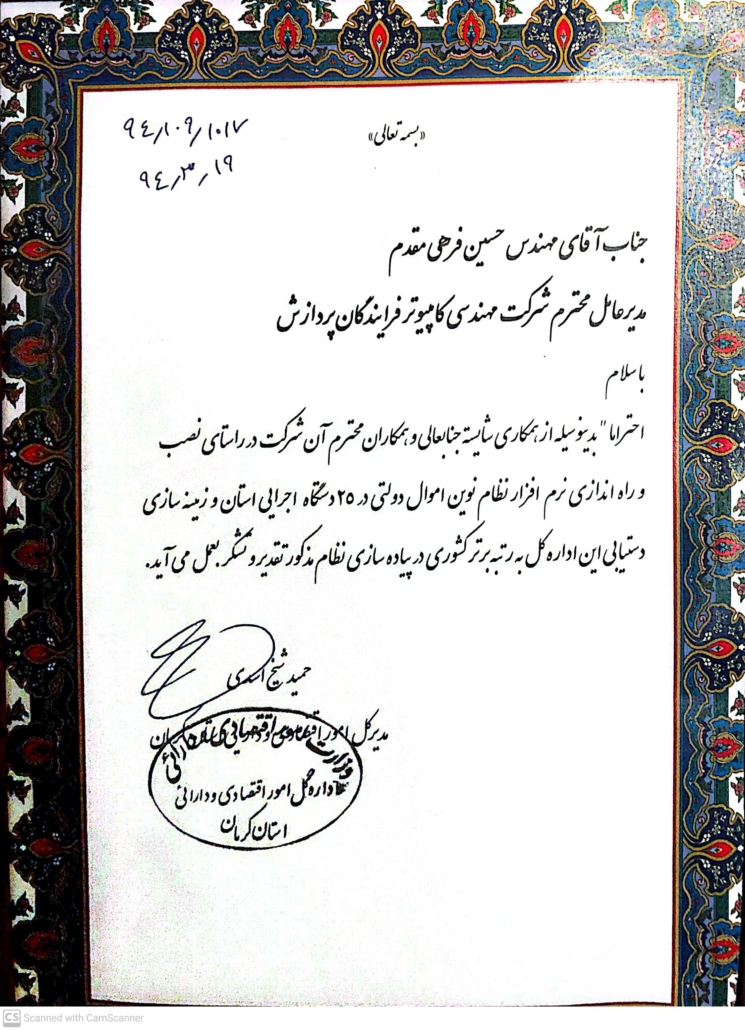 «بسمه تعالی»
۹٤/۱۰۹/۱۰۱۷
۹٤/۳/۱۹
جناب آقای مهندس حسین فرهی مقدم
مدیرعامل محترم شرکت مهندسی کامپیوتر فرایندگان پردازش
با سلام
احتراما" بدینوسیله از همکاری شایسته جنابعالی و همکاران محترم آن شرکت در راستای نصب
و راه اندازی نرم افزار نظام نوین اموال دولتی در ۲۵ دستگاه اجرایی استان و زمینه سازی
دستیابی این اداره کل به رتبه برتر کشوری در پیاده سازی نظام مذکور تقدیر و تشکر بعمل می آید.
حمید شیخ اسدی
مدیرکل امور اقتصادی و دارایی استان کرمان
وزارت امور اقتصادی و دارائی
اداره کل امور اقتصادی و دارائی
استان کرمان
CS Scanned with CamScanner